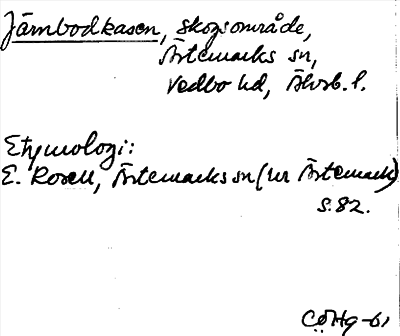 Järnbodkasen, skogsområde,
Ärtemarks sn,
Vedbo hd, Älvsb. l.
Etymologi:
E. Rosell, Ärtemarks sn (ur Ärtemark)
s. 82.
CÖHg-61